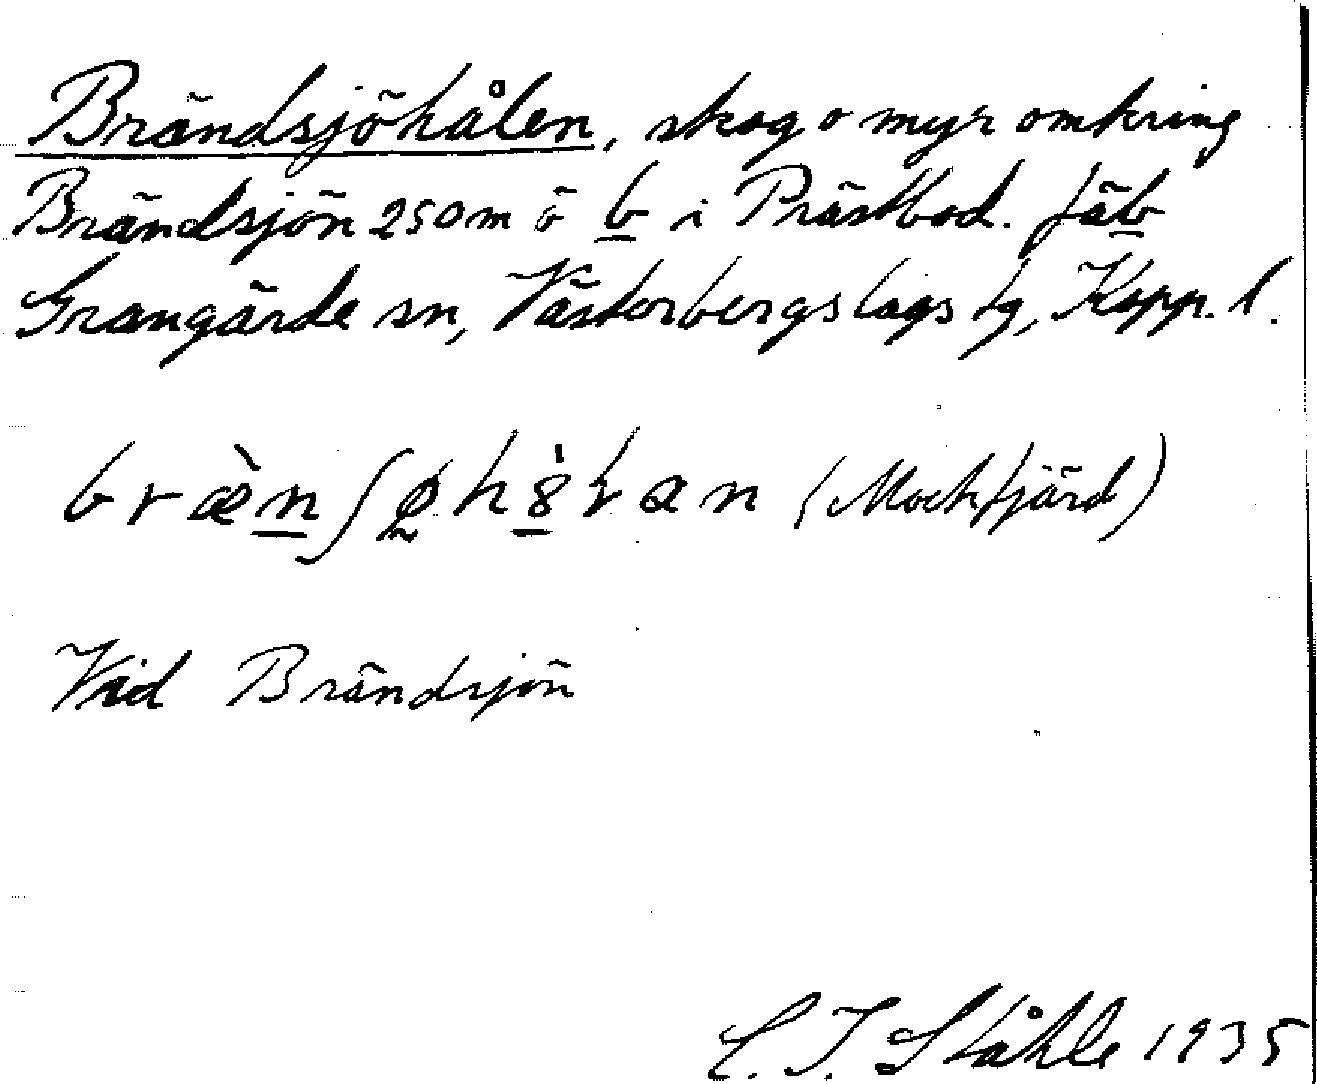 Brändsjöhålen, skog o myr omkring
Brändsjön 250 m ö b i Prästbod. fäb
Grangärde sn, Västerbergslags tg, Kopp. l.
bræ̀nʃøhȯ̀ɽan (Mockfjärd)
Vid Brändsjön
C. I. Ståhle 1935